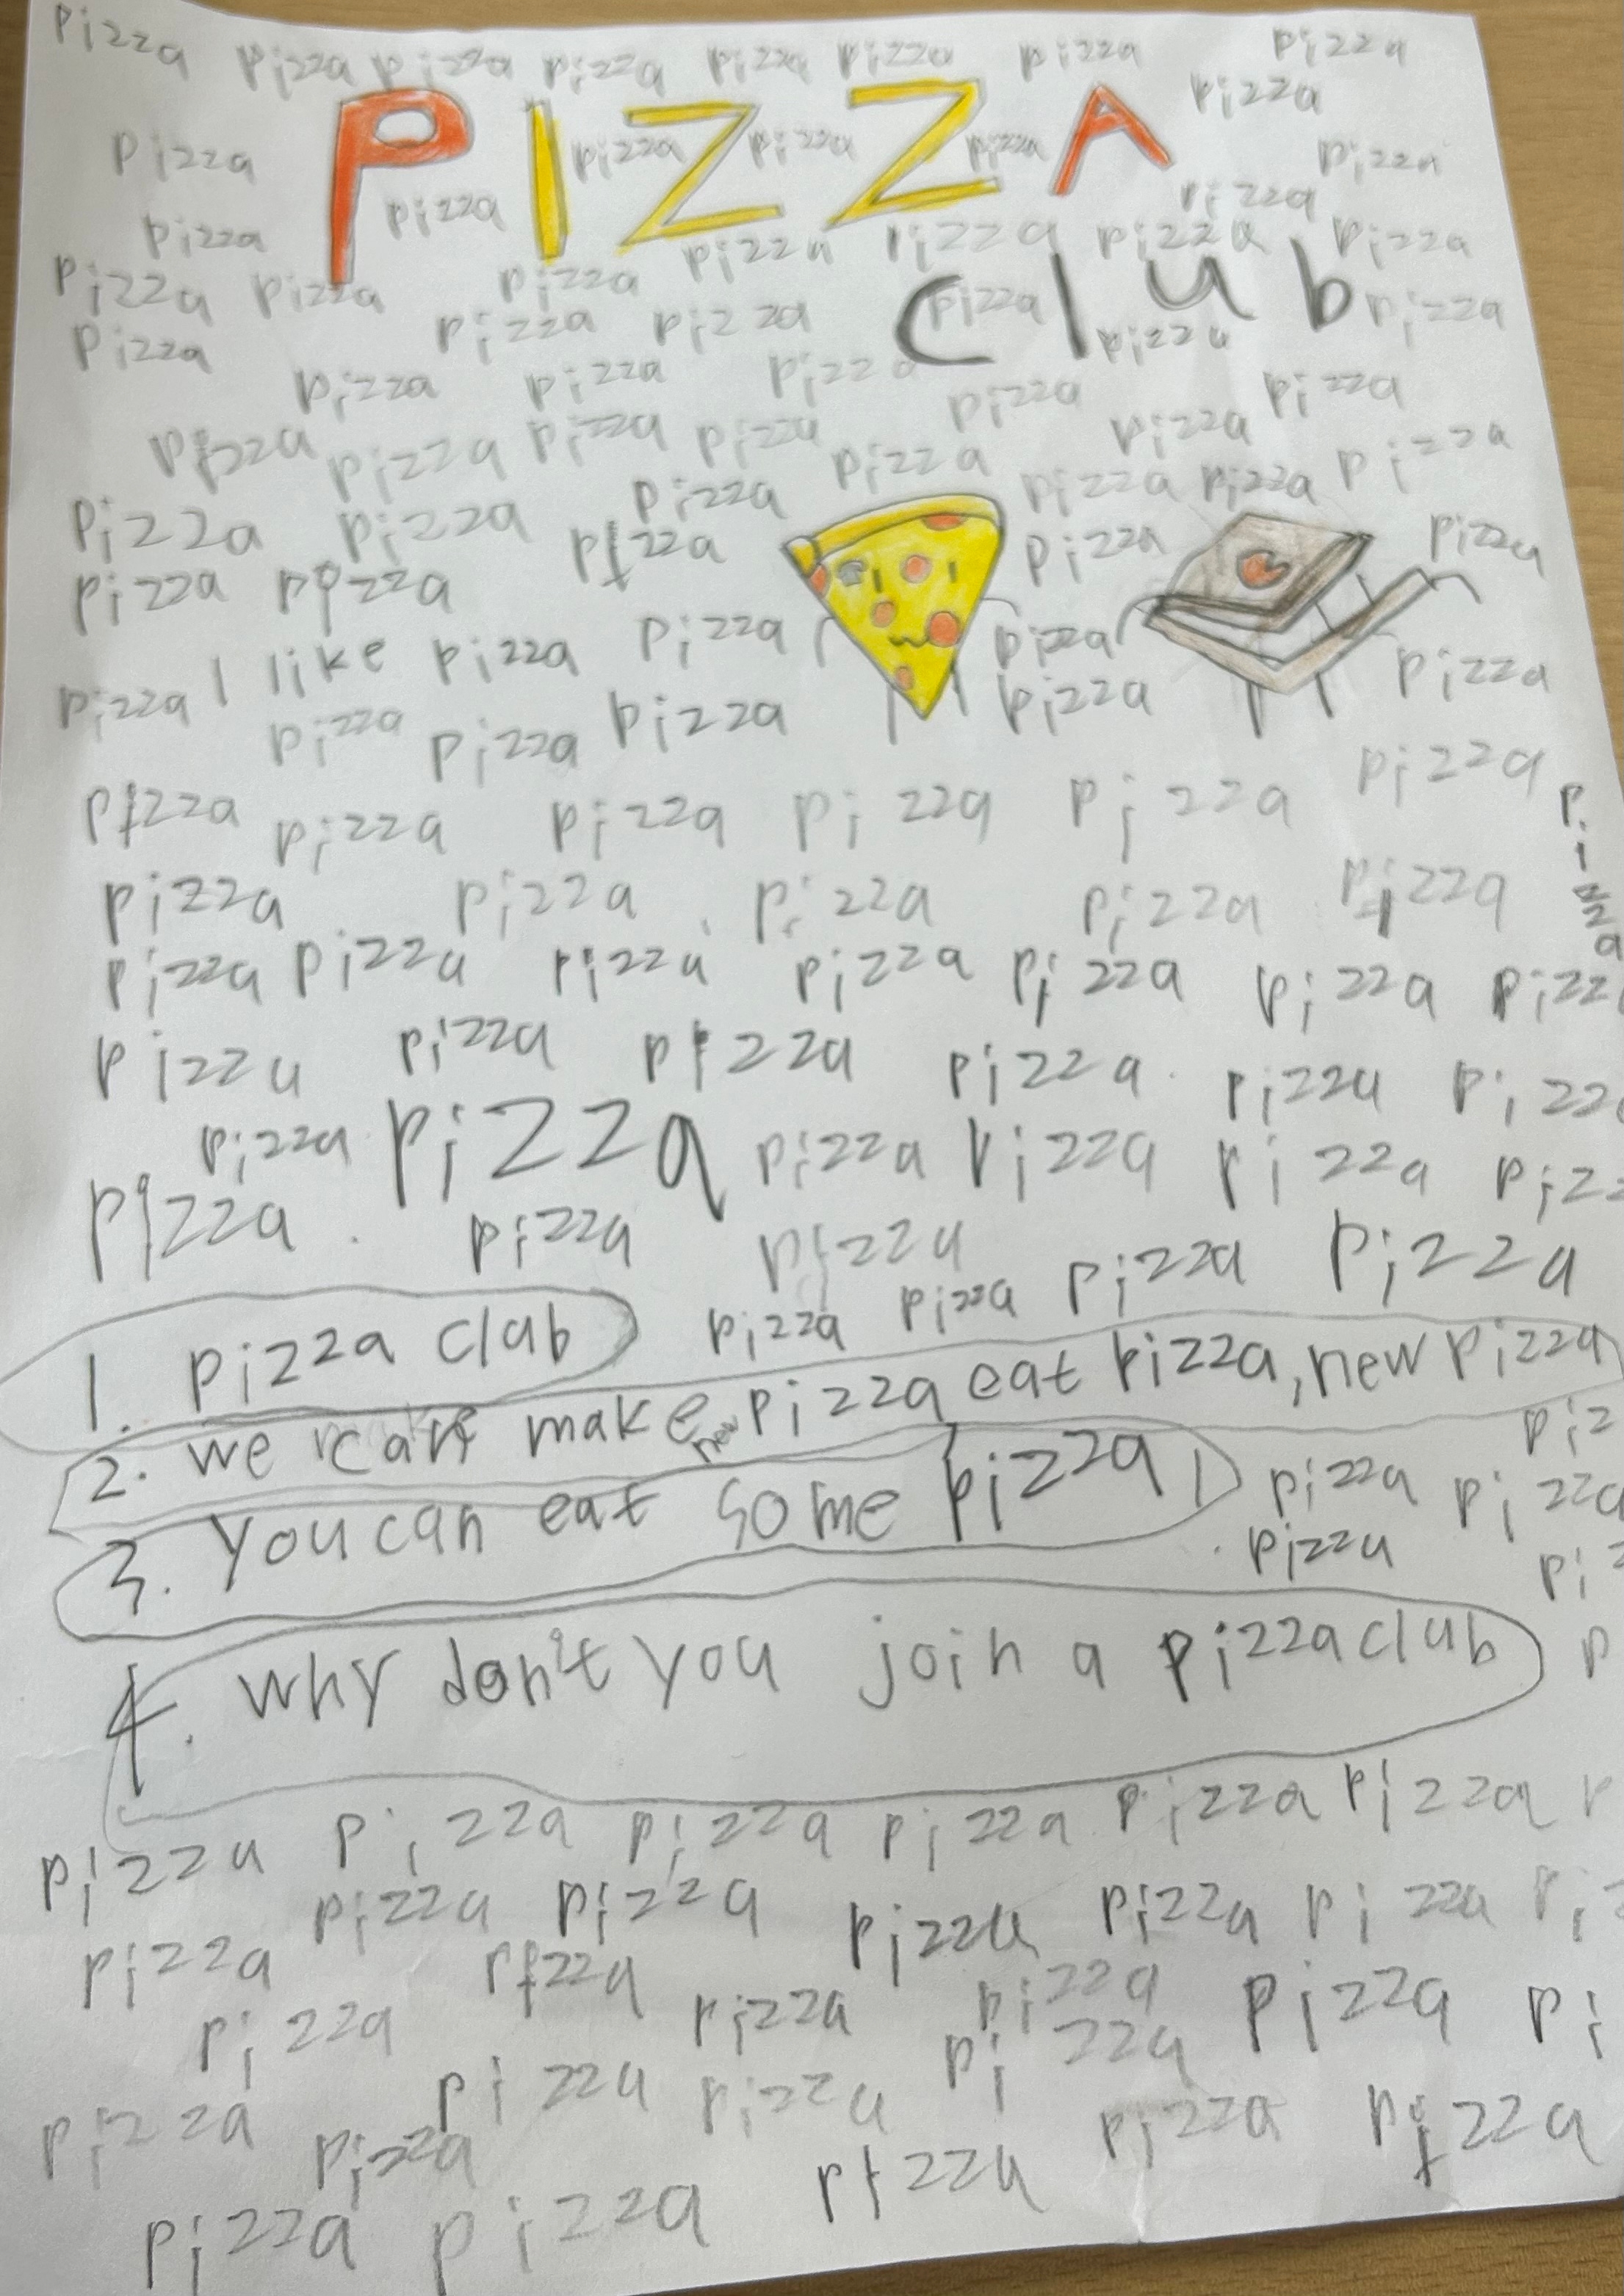 pizza pizza pizza pizza pizza pizza pizza pizza
PIZZA pizza
pizza pizza pizza pizza pizza
pizza pizza
pizza pizza pizza pizza pizza
club
pizza pizza pizza pizza
pizza pizza pizza pizza pizza pizza
pizza pizza pizza pizza pizza
pizza pizza pizza pizza pizza pizza
pizza pizza pizza pizza pizza pizza
pizza pizza pizza pizza pizza
pizza pizza
I like pizza pizza pizza pizza
pizza pizza pizza pizza pizza
pizza pizza pizza pizza pizza pizza
pizza
pizza pizza pizza pizza pizza
pizza pizza pizza pizza pizza pizza
pizza pizza pizza pizza pizza
pizza pizza pizza pizza pizza
pizza pizza pizza pizza pizza
pizza pizza
1. pizza club
2. we can make new pizza eat pizza, new pizza
3. You can eat some pizza
pizza
pizza
4. why don't you join a pizza club
pizza pizza pizza pizza pizza pizza
pizza pizza pizza pizza pizza
pizza pizza
pizza pizza pizza pizza
pizza pizza pizza
pizza pizza pizza pizza
pizza pizza pizza